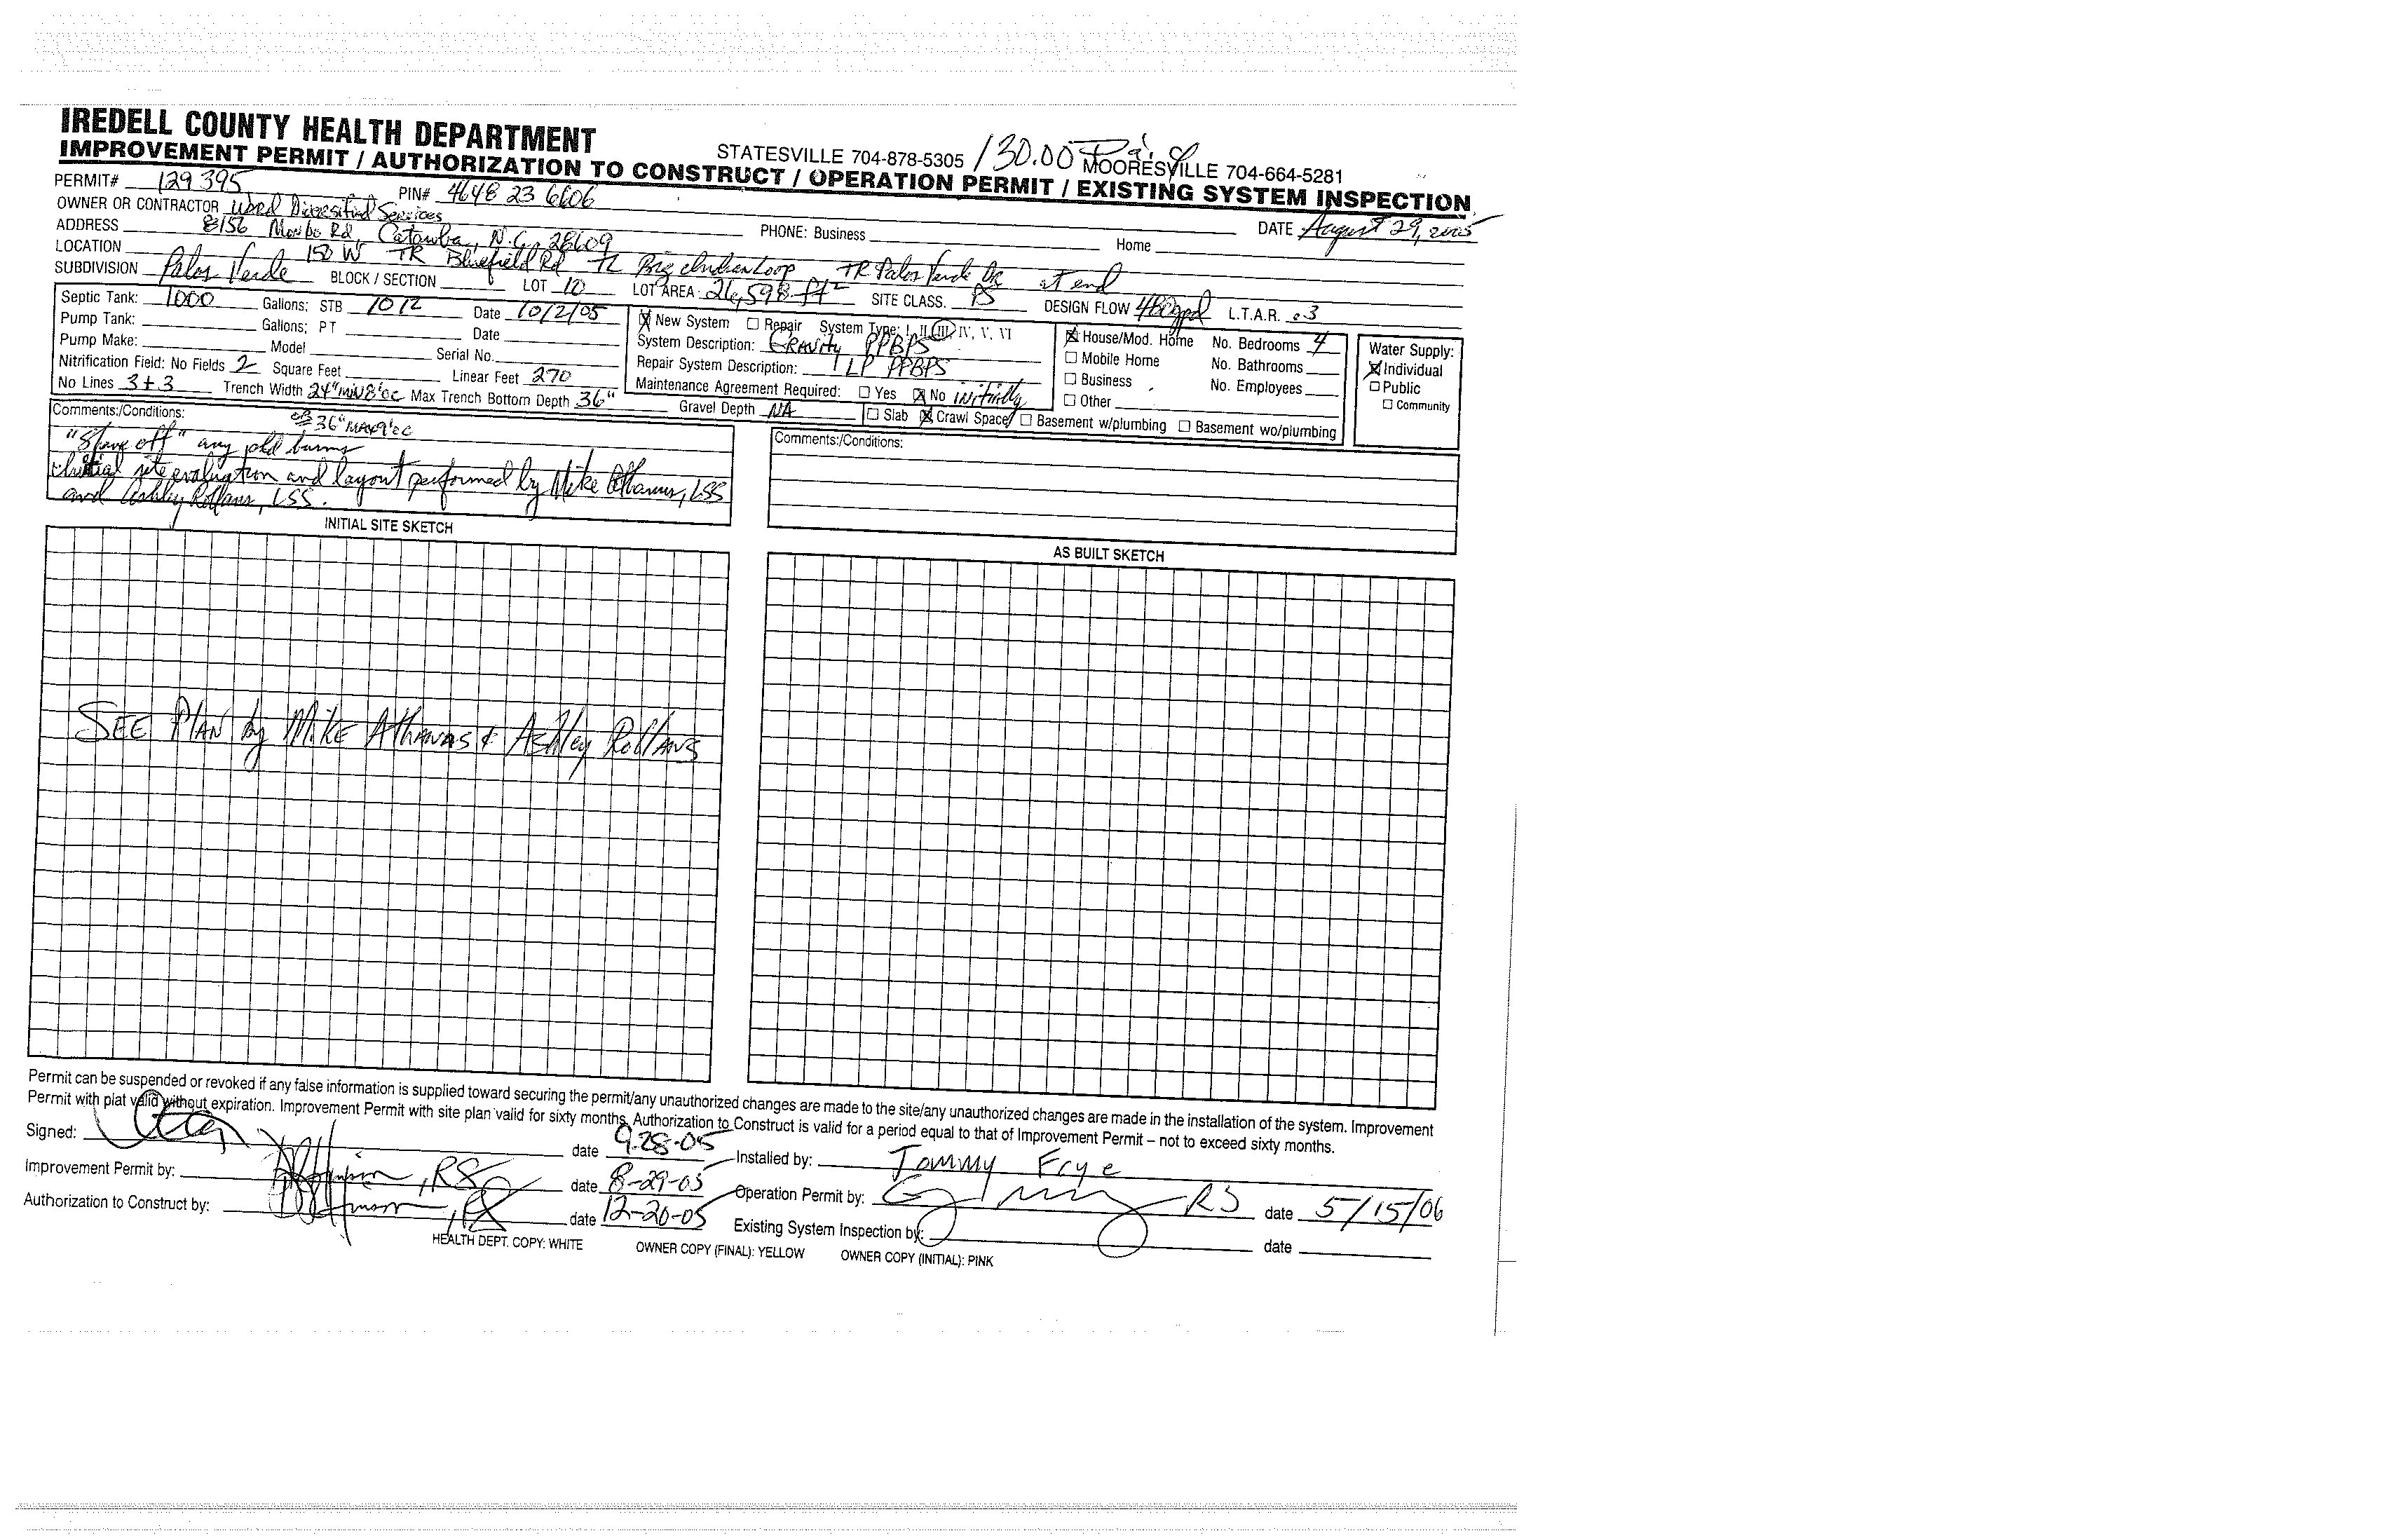 IREDELL COUNTY HEALTH DEPARTMENT
STATESVILLE 704-878-5305 130.00 Pd MOORESVILLE 704-664-5281
IMPROVEMENT PERMIT / AUTHORIZATION TO CONSTRUCT / OPERATION PERMIT / EXISTING SYSTEM INSPECTION
PERMIT# 129395 PIN# 4648 23 6606
OWNER OR CONTRACTOR Ward Diversified Services PHONE: Business Home DATE August 29, 2005
ADDRESS 8156 Monbo Rd Catawba, N.C. 28609
LOCATION 150 W TR Bluefield Rd TL Big Indian Loop TR Palos Verde Dr at end
SUBDIVISION Palos Verde BLOCK / SECTION LOT 10 LOT AREA 26,598 ft² SITE CLASS. PS DESIGN FLOW 480gpd L.T.A.R. .3
Septic Tank: 1000 Gallons; STB 1012 Date 10/2/05
Pump Tank: Gallons; PT Date
Pump Make: Model Serial No.
Nitrification Field: No Fields 2 Square Feet Linear Feet 270
No Lines 3+3 Trench Width 24" min 8'oc Max Trench Bottom Depth 36" Gravel Depth NA
36" MAX 9'oc
New System Repair System Type: I, II, III, IV, V, VI
System Description: GRAVITY PPBPS
Repair System Description: LP PPBPS
Maintenance Agreement Required: Yes No initially
Slab Crawl Space Basement w/plumbing Basement wo/plumbing
House/Mod. Home No. Bedrooms 4
Mobile Home No. Bathrooms
Business No. Employees
Other
Water Supply:
Individual
Public
Community
Comments:/Conditions:
"Shave off" any old
Initial site evaluation and layout performed by Mike Athanas, LSS
and Ashley Rollans, LSS.
Comments:/Conditions:
INITIAL SITE SKETCH
SEE PLAN by MIKE AThANAS & AShley RollANS
AS BUILT SKETCH
Permit can be suspended or revoked if any false information is supplied toward securing the permit/any unauthorized changes are made to the site/any unauthorized changes are made in the installation of the system. Improvement
Permit with plat valid without expiration. Improvement Permit with site plan valid for sixty months. Authorization to Construct is valid for a period equal to that of Improvement Permit – not to exceed sixty months.
Signed: date 9-28-05 Installed by: Tommy Frye
Improvement Permit by: , RS date 8-29-05 Operation Permit by: RS date 5/15/06
Authorization to Construct by: , RS date 12-20-05 Existing System Inspection by: date
HEALTH DEPT. COPY: WHITE OWNER COPY (FINAL): YELLOW OWNER COPY (INITIAL): PINK